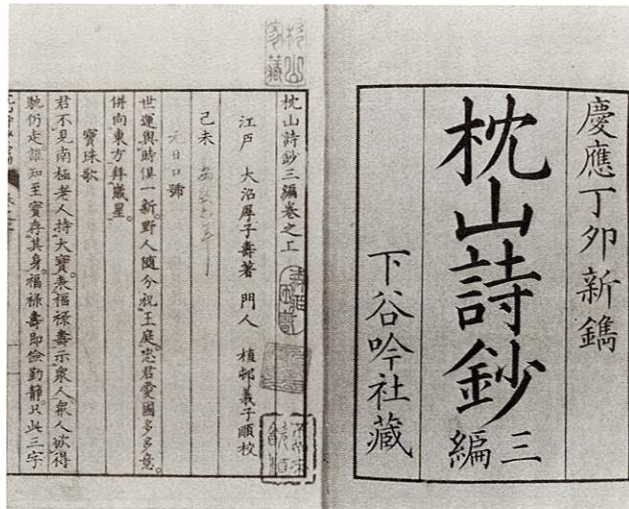 慶應丁卯新鐫
枕山詩鈔三編
下谷吟社藏
枕山詩鈔三編卷之上
江戶 大沼厚子壽著 門人 植邨義子順校
己未
元日口號
世運與時俱一新。野人隨今祝王庭。忠君愛國多多意。
併向東方拜歲星。
寶珠歌
君不見南極老人持大寶。表福祿壽示衆人。衆人欲得
馳仍走。誰知至寶存其身。福祿壽即儉勤靜。只此三字